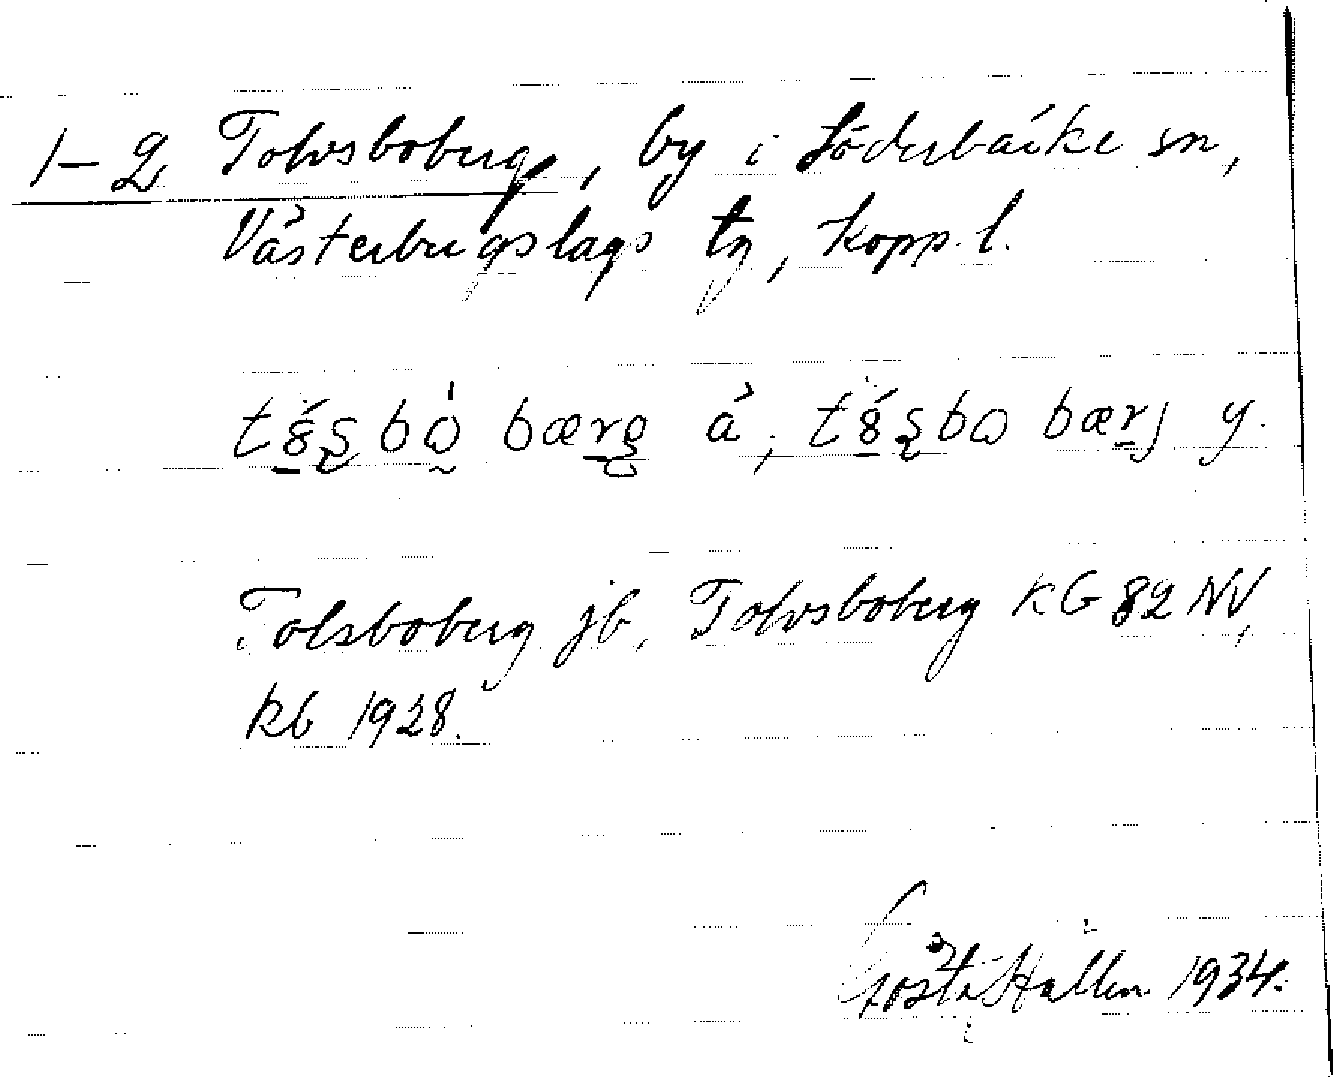 1-2 Tolvsboberg, by i Söderbärke sn,
Västerbergslags tg, Kopp. l.
bærg ä, bærj y.
Tolsboberg jb, Tolvsboberg KG 82 NV,
kb 1928.
Gösta Hallén 1934.